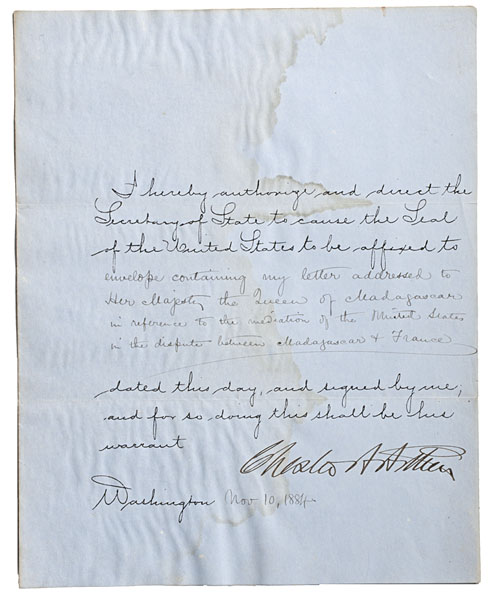 I hereby authorize and direct the
Secretary of State to cause the Seal
of the United States to be affixed to
envelope containing my letter addressed to
Her Majesty the Queen of Madagascar
in reference to the mediation of the United States
in the dispute between Madagascar & France
dated this day, and signed by me;
and for so doing this shall be his
warrant
Chester A Arthur
Washington Nov. 10, 1884